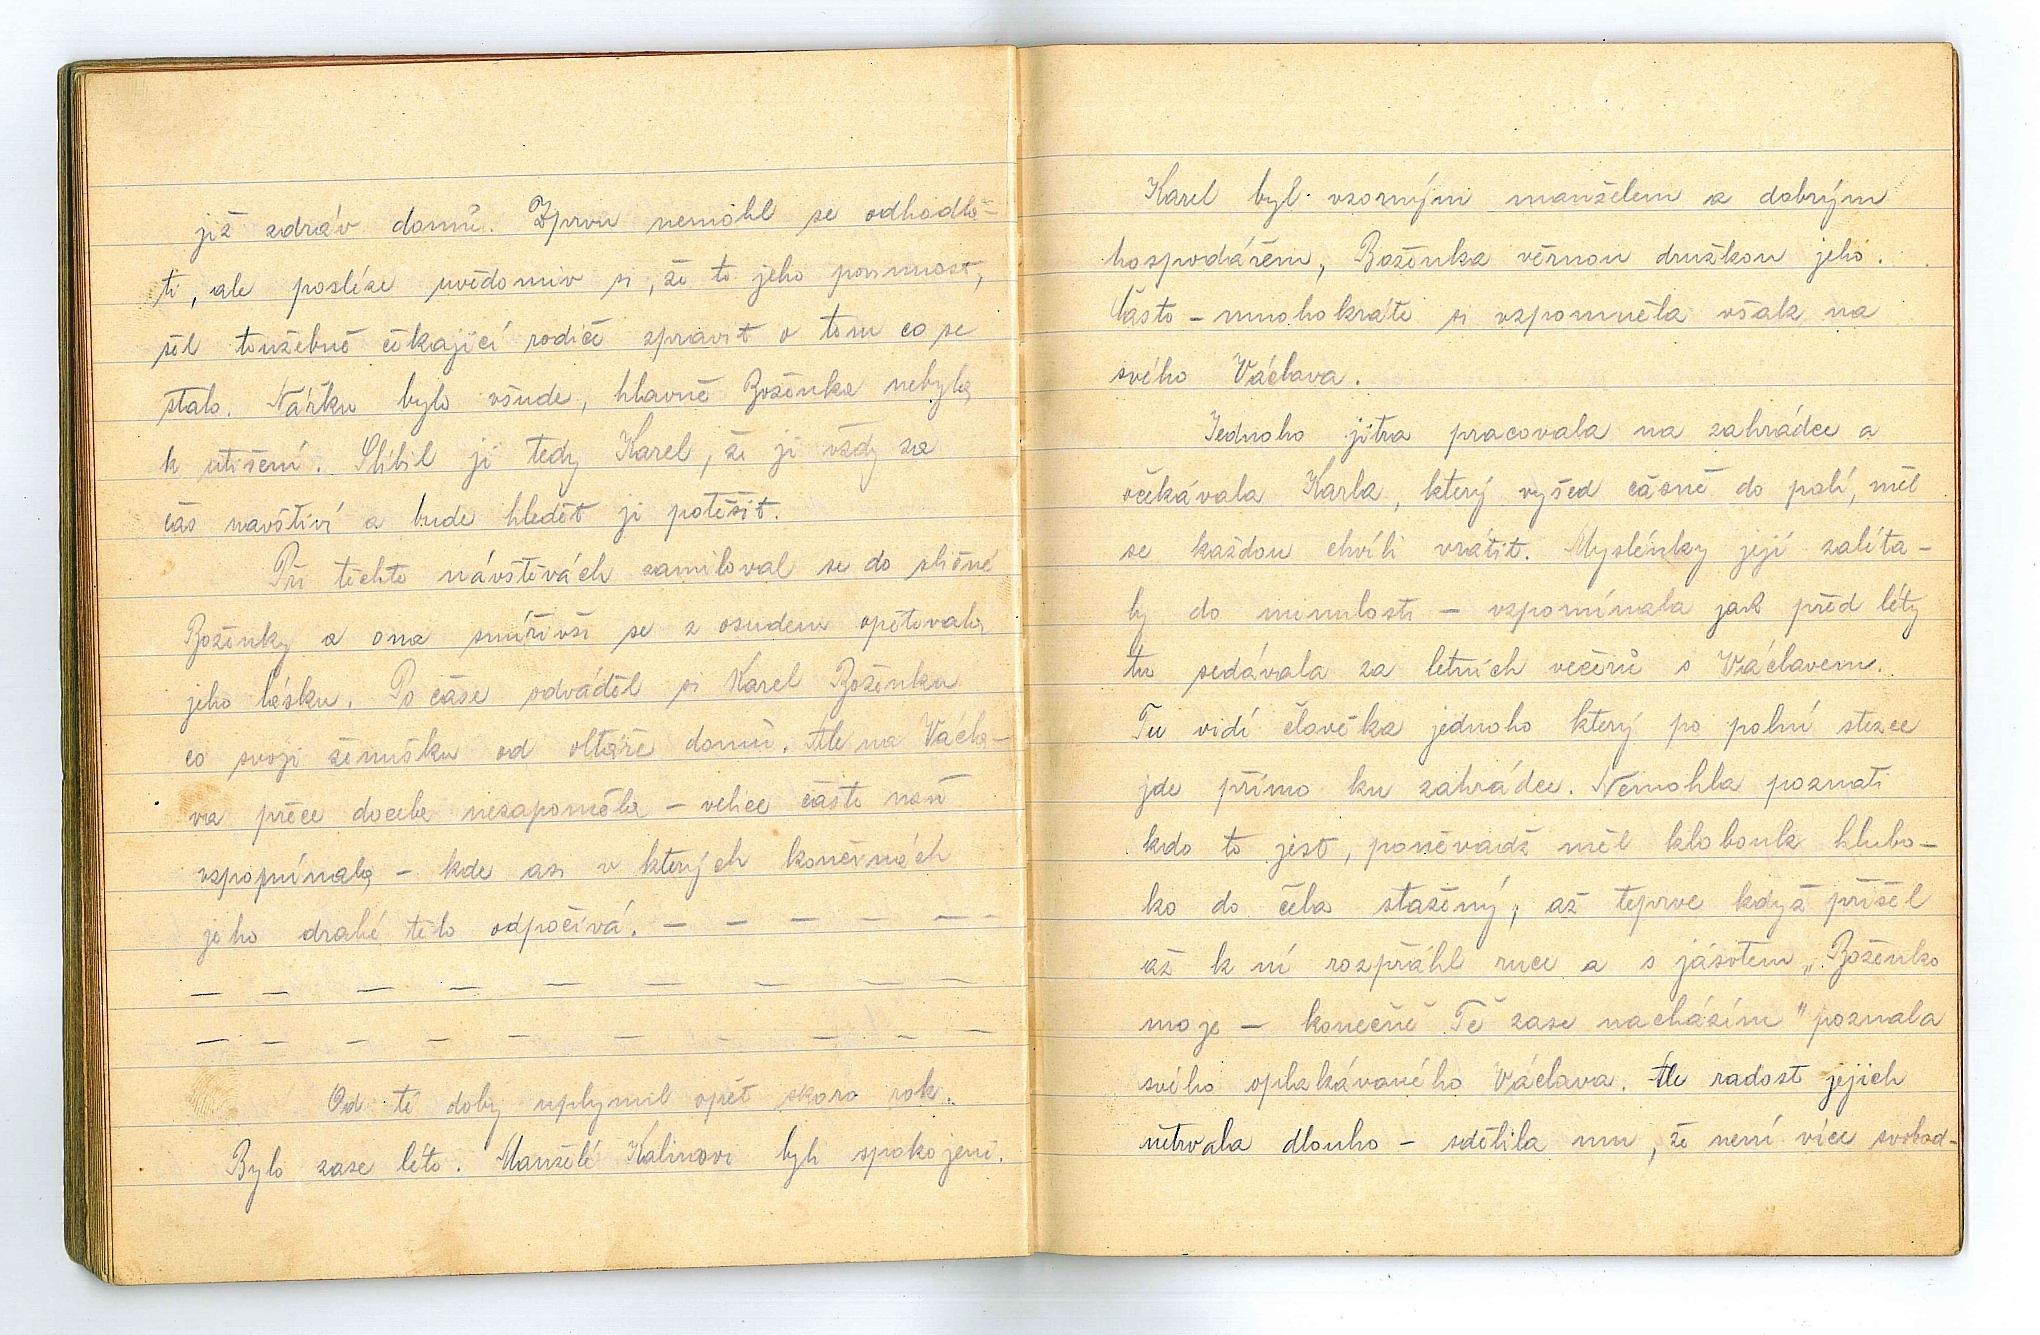 již zdráv domů. Zprvu nemohl se odhodla-
ti, ale posléze uvědomiv si, že to jeho povinnost,
šel toužebně čekající rodiče zpravit o tom co se
stalo. Nářku bylo všude, hlavně Boženka nebyla
k utišení. Slíbil jí tedy Karel, že ji vždy za
čas navštíví a bude hledět ji potěšit.
Při těchto návštěvách zamiloval se do sličné
Boženky a ona smířivši se z osudem opětovala
jeho lásku. Po čase odváděl si Karel Boženku
co svoji ženušku od oltáře domů. Ale na Václa-
va přece docela nezapoměla – velice často naň
vzpomínala – kde asi v kterých končinách
jeho drahé tělo odpočívá. – – – – – –
– – – – – – – – – –
– – – – – – – – – –
Od té doby uplynul opět skoro rok.
Bylo zase léto. Manželé Kalinovi byli spokojeni.
Karel byl vzorným manželem a dobrým
hospodářem, Boženka věrnou družkou jeho.
Často – mnohokráte si vzpomněla však na
svého Václava.
Jednoho jitra pracovala na zahrádce a
očekávala Karla, který vyšed časně do polí, měl
se každou chvíli vrátit. Myslénky její zalíta-
ly do minulosti – vzpomínala jak před léty
tu sedávala za letních večerů s Václavem.
Tu vidí člověka jednoho který po polní stezce
jde přímo ku zahrádce. Nemohla poznati
kdo to jest, poněvadž měl klobouk hlubo-
ko do čela stažený; až teprve když přišel
až k ní rozpřáhl ruce a s jásotem „Boženko
moje – konečně Tě zase nacházím" poznala
svého oplakávaného Václava. Ale radost jejich
netrvala dlouho – sdělila mu, že není více svobod-